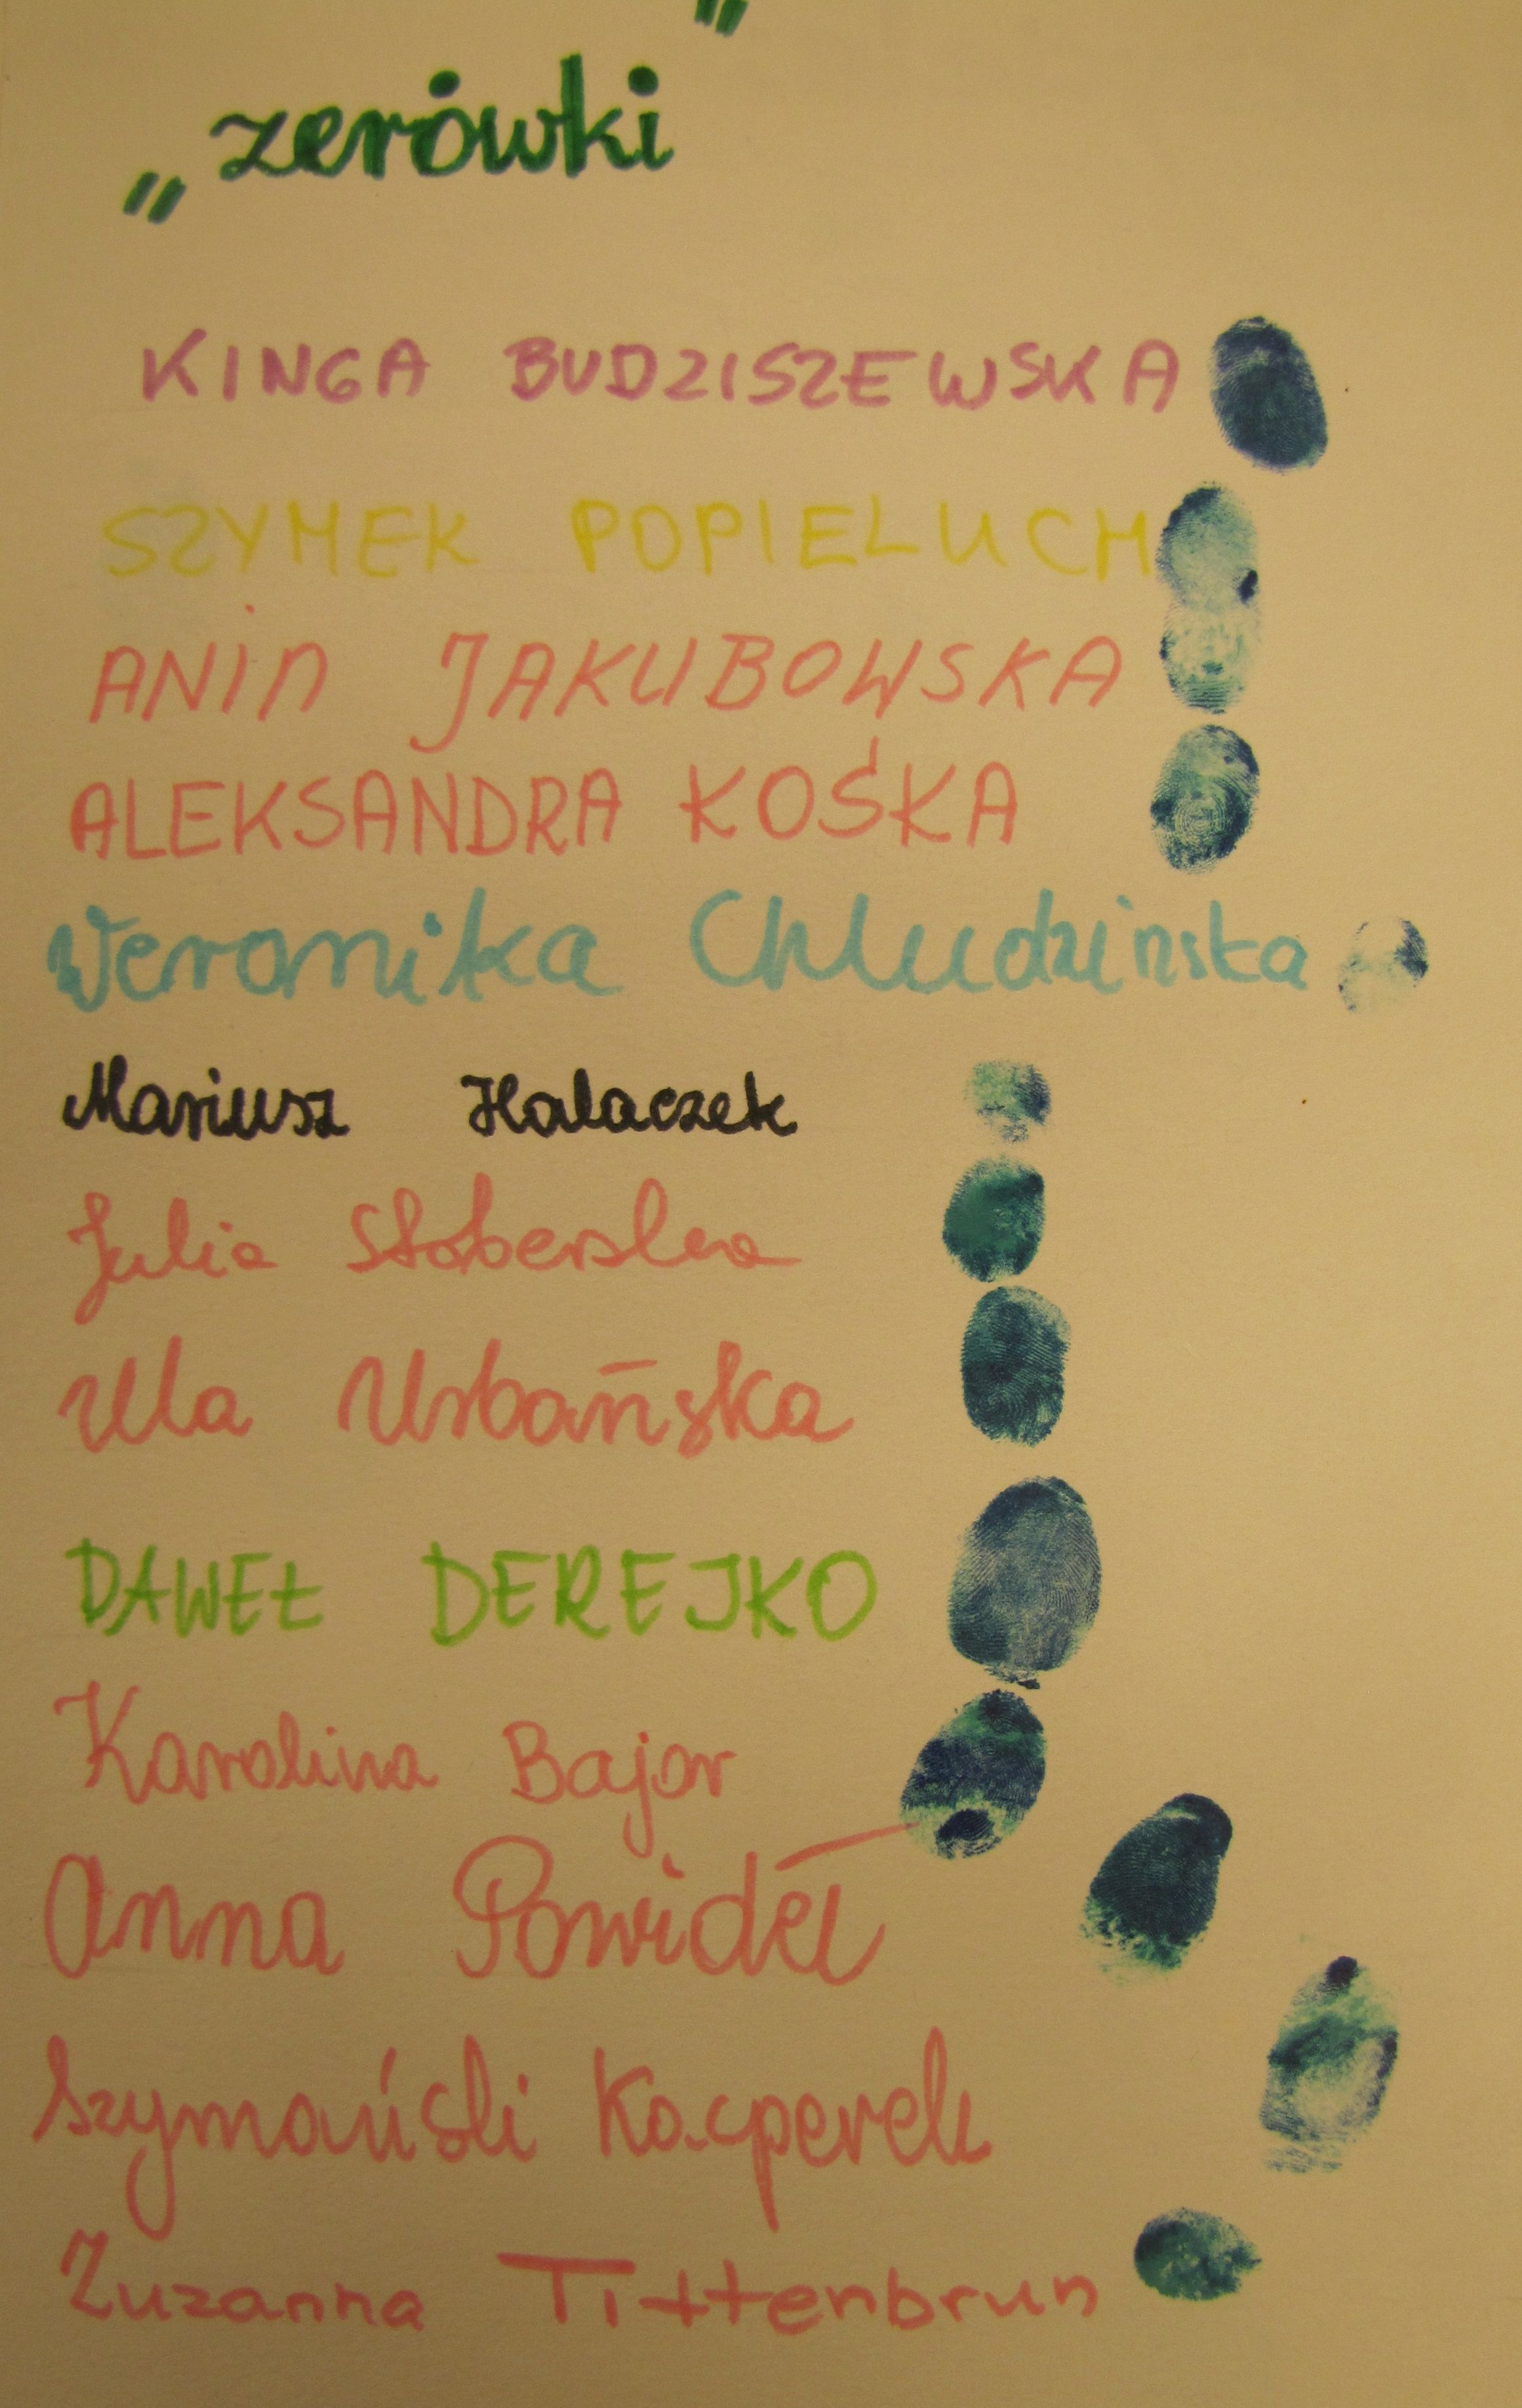 ”
„zerówki
KINGA BUDZISZEWSKA
SZYMEK POPIELUCH
ANIA JAKUBOWSKA
ALEKSANDRA KOŚKA
Weronika Chludzinska
Mariusz Halaczek
Julia
Ula Urbańska
DAWEŁ DEREJKO
Karolina Bajor
Anna Powideł
Szymański Kacperek
Zuzanna Tittenbrun